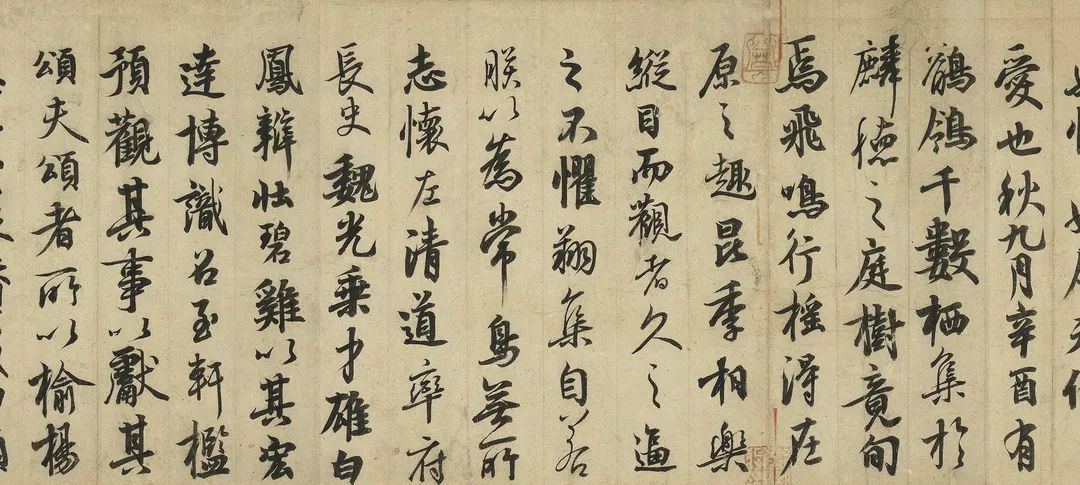 愛也秋九月辛酉有
鶺鴒千數栖集於
麟德之庭樹竟旬
焉飛鳴行搖得在
原之趣昆季相樂
縱目而觀者久之逼
之不懼翔集自若
朕以為常鳥無所
志懷左清道率府
長史魏光乘才雄白
鳳辯壯碧雞以其宏
達博識召至軒檻
預觀其事以獻其
頌夫頌者所以榆楊